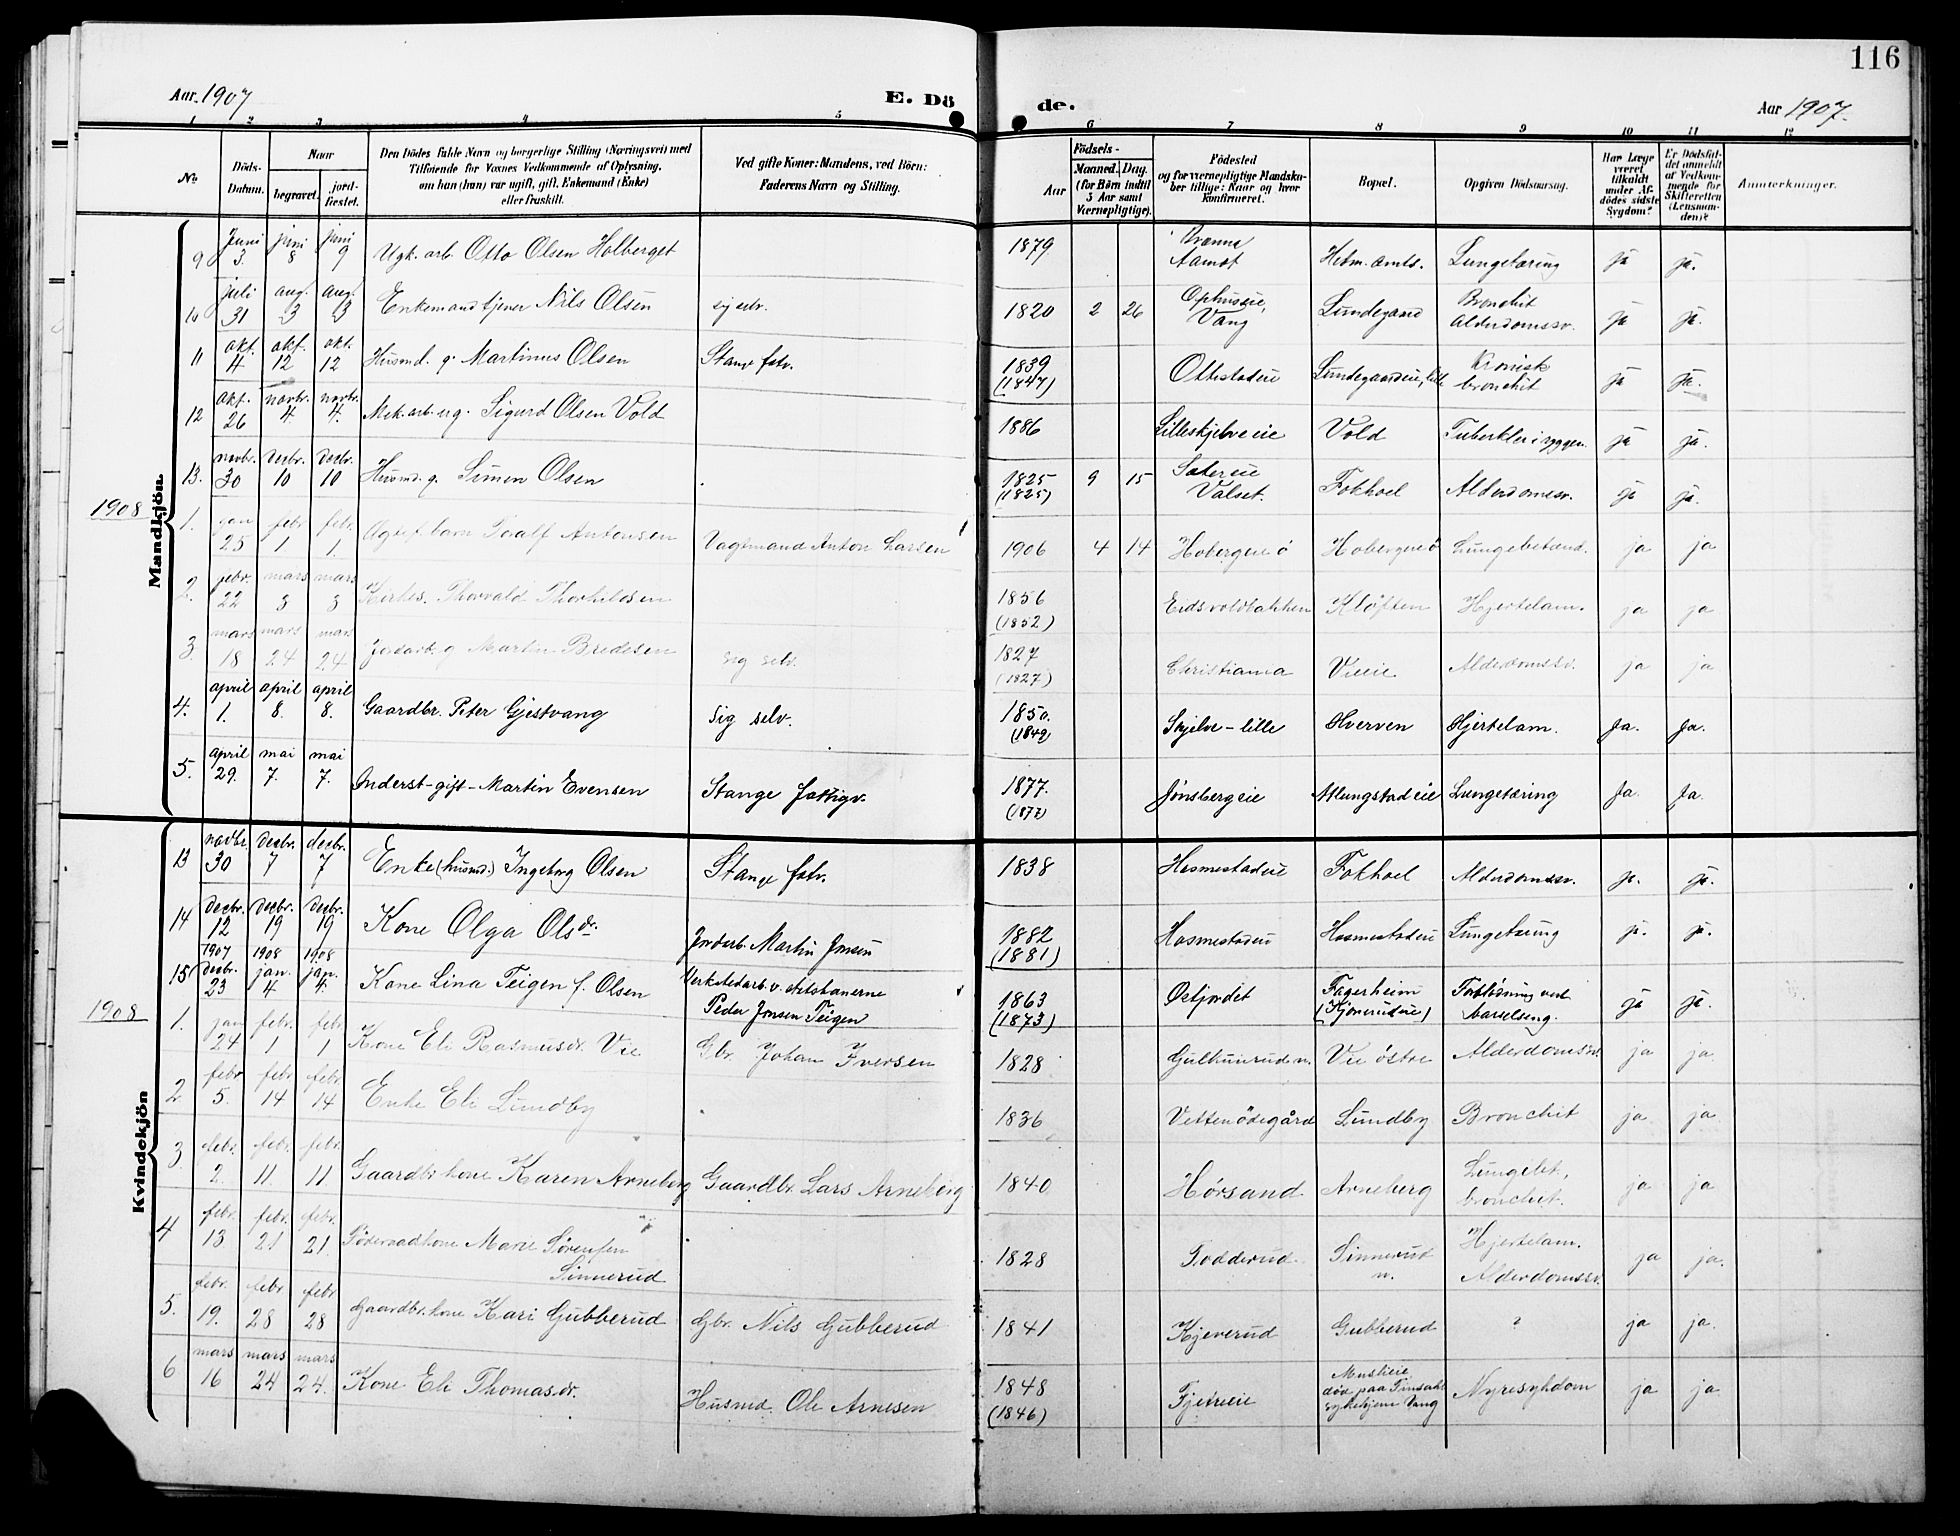 116
Aar 1907
E. Dö de.
Aar 1907.
1 2 3 4 5 6 7 8 9 10 11 12
No
Döds-Datum.
Naar
begravet.
jord-fæstet.
Den Dödes fulde Navn og borgerlige Stilling (Næringsvei) med
Tilföiende for Voxnes Vedkommende af Oplysning,
om han (hun) var ugift, gift, Enkemand (Enke)
eller fraskilt.
Ved gifte Koner: Mandens, ved Börn:
Faderens Navn og Stilling.
Födsels-
Aar
Maaned. Dag.
(for Börn indtil
5 Aar samt
Værnepligtige).
Födested
og for værnepligtige Mandska-
ber tillige: Naar og hvor
konfirmeret.
Bopæl.
Opgiven Dödsaarsag.
Har Læge
været
tilkaldt
under Af-
dödes sidste
Sygdom?
Er Dödsfal-
det anmeldt
af Vedkom-
mende for
Skifteretten
(Lensman-
den)?
Anmærkninger.
Mandkjön.
9 Juni 3. juni 8 juni 9 Ugk. arb. Otto Olsen Holberget 1879 Aamot Hebm. amts. Lungetæring ja ja.
10 juli 31 aug. 3 aug. 3 Enkemand tjener Nils Olsen sj selv. 1820 2 26 Ophuseie, Vang Lundegaard Bronchit Alderdomssv. ja ja.
11 okt. 4 okt. 12 okt. 12 Husmd. g. Martinus Olsen Stange fatv. 1839 (1847) Ottestadeie Lundegaardeie, lille Kronisk bronchit ja ja.
12 okt. 26 novbr. 4. novbr. 4. Mek. arb. ug. Sigurd Olsen Vold 1886 Lilleskjelve eie Vold Tuberkler i ryggen. ja ja.
13. novbr. 30 desbr. 10 desbr. 10 Husmd. g. Simen Olsen 1825 (1825) 9 15 Sætereie Valset. Fokhoel Alderdomssv. ja ja.
1908
1. jan 25 febr 1 febr. 1. Ægtef. barn Toralf Antonsen Vagtmand Anton Larsen 1906 4 14 Hobergeie ö Hobergeie ö Lungebetænd. ja ja
2. febr. 22 mars 3 mars 3 Kirkes. Thorvald Thorkildsen 1856 (1852) Eidsvoldbakken Kløften Hjertelam. ja ja
3. mars 18 mars 24 mars 24 Jordarb. g Martin Bredesen sig selv. 1827 (1827) Christiania Vieie Alderdomssv. ja ja
4. april 1. april 8. april 8. Gaardbr. Peter Gjestvang sig selv. 1850. (1849) Skjelve-lille Hverven Hjertelam. Ja. Ja.
5. april 29. mai 7. mai 7. Inderst-gift-Martin Evensen Stange fattigv. 1877. (1877) Jønsbergeie Atlungstadeie Lungetæring Ja. Ja.
Kvindekjön
13 novbr. 30 desbr. 7 desbr. 7 Enke (husmd.) Ingeborg Olsen Stange fatv. 1838 Hosmestadeie Fokhoel Alderdomssv. ja. ja.
14 desbr. 12 desbr. 19 desbr. 19 Kone Olga Olsdr. Jordarb. Martin Jensen 1882 (1881) Hosmestadeie Hosmestadeie Lungetæring ja. ja.
15 1907 desbr. 23 1908 jan. 4 1908 jan. 4. Kone Lina Teigen f. Olsen Verkstedarb. v. statsbanerne Peder Jensen Teigen 1863 (1873) Østjordet Fagerheim (Kjonerudeie) Forblødning ved barselseng. ja ja.
1908
1. jan 24 febr. 1 febr 1 Kone Eli Rasmusdr. Vie Gbr. Johan Iversen 1828 Gulhuinrud n. Vie östre Alderdomssv. ja ja.
2 febr 5. febr 14 febr 14 Enke Eli Lundby 1836 Vettenödegård Lundby Bronchit ja ja
3 febr. 2. febr. 11. febr. 11 Gaardbr. kone Karen Arneberg Gaardbr. Lars Arneberg 1840 Hörsand Arneberg Lungebet, bronchit. ja ja
4 febr. 13 febr. 21 febr. 21. Föderaadkone Marie Sørensen Sinnerud 1828 Todderud Sinnerud n. Hjertelam. Alderdomssv. ja ja.
5. febr. 19. febr 28 febr 28 Gaardbr. kone Kari Gubberud Gbr. Nils Gubberud 1841 Kjeverud Gubberud ? ja ja.
6 mars 16 mars 24 mars 24. Kone Eli Thomasdr. Husmd. Ole Arnesen 1848 (1846) Fjetreie Muslieie död paa sykehjem Vang Nyresykdom ja ja